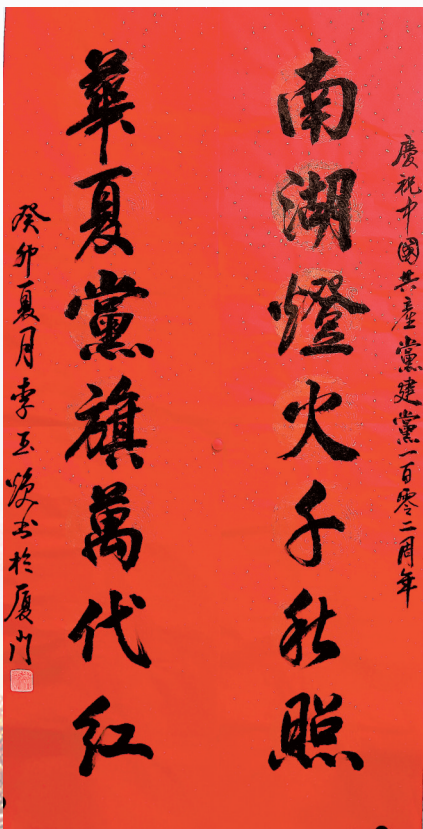 慶祝中國共產黨建黨一百零二周年
南湖燈火千秋照
華夏黨旗萬代紅
癸卯夏月李玉焕书於厦门